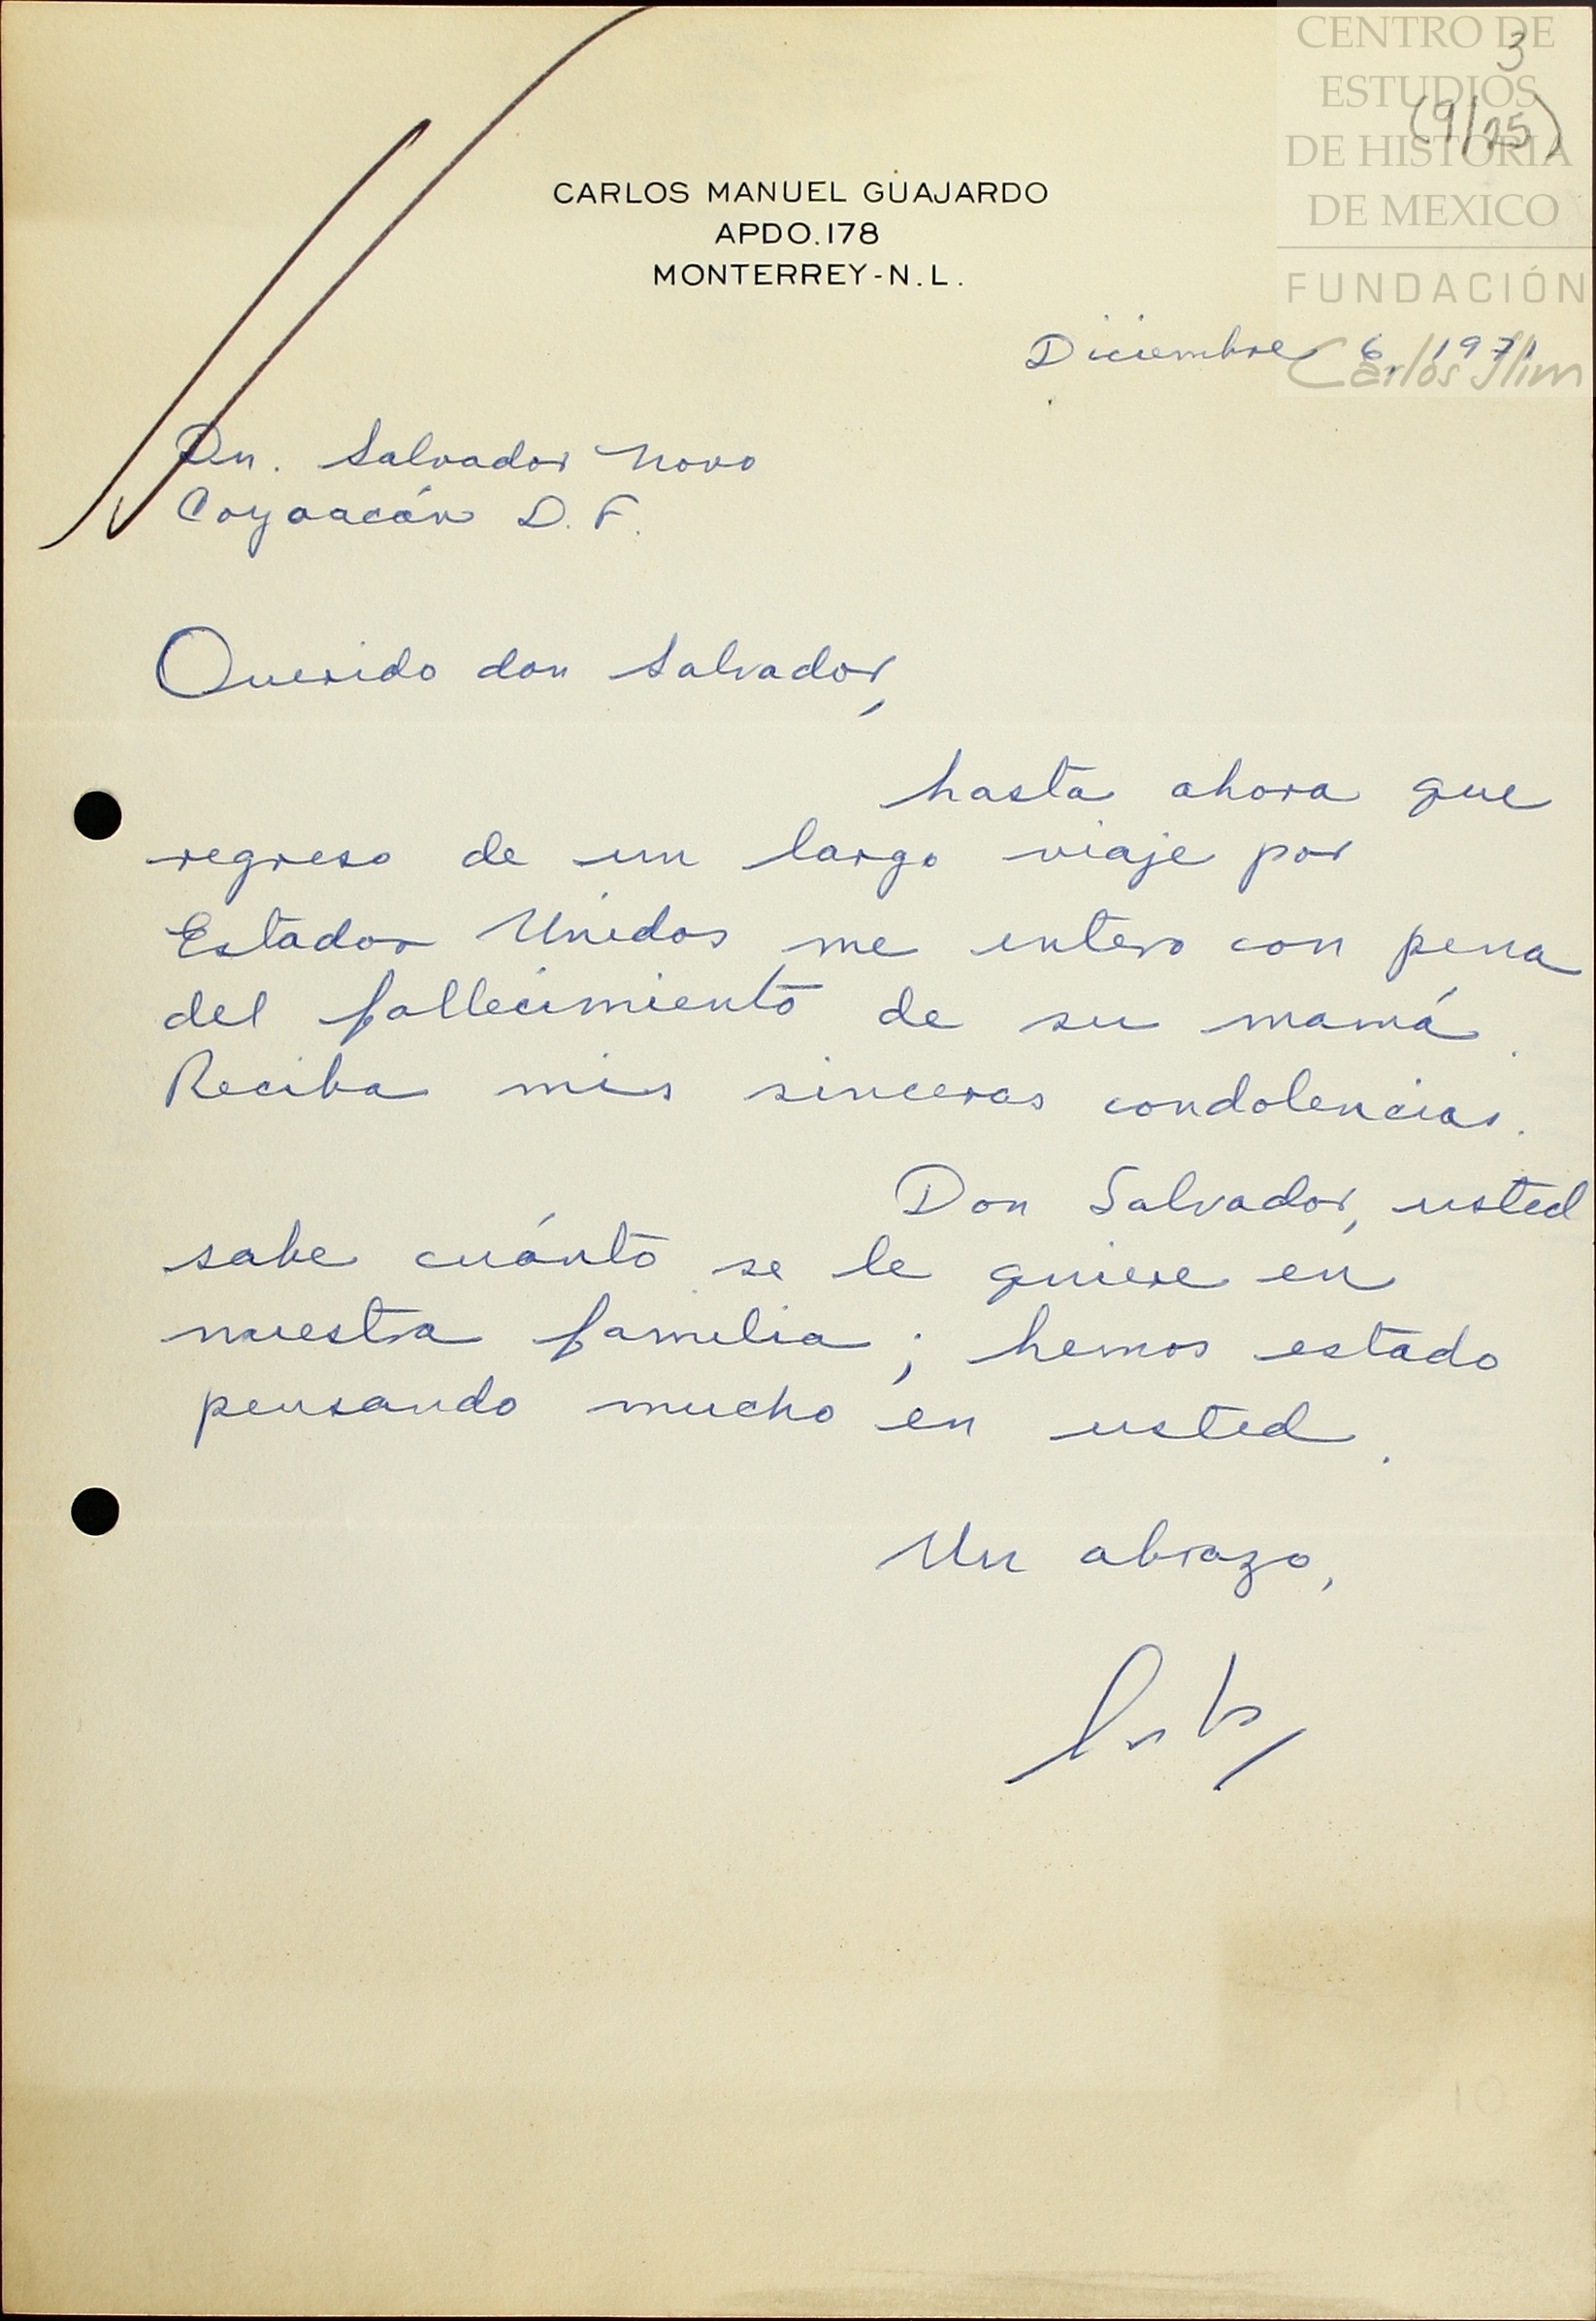 CENTRO DE
ESTUDIOS
DE HISTORIA
DE MEXICO
FUNDACIÓN
Carlos Slim
3
(9/25)
CARLOS MANUEL GUAJARDO
APDO.178
MONTERREY-N.L.
Diciembre 6, 1971
Dn. Salvador Novo
Coyoacán D. F.
Querido don Salvador,
hasta ahora que
regreso de un largo viaje por
Estados Unidos me entero con pena
del fallecimiento de su mamá.
Reciba mis sinceras condolencias.
Don Salvador, usted
sabe cuánto se le quiere en
nuestra familia; hemos estado
pensando mucho en usted.
Un abrazo,